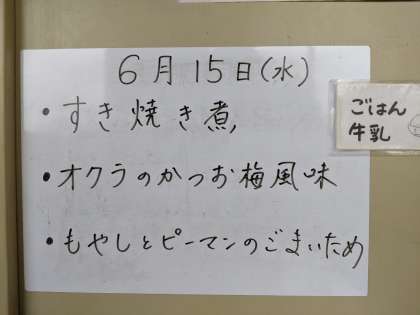 6月15日(水)
・すき焼き煮
・オクラのかつお梅風味
・もやしとピーマンのごまいため
ごはん
牛乳